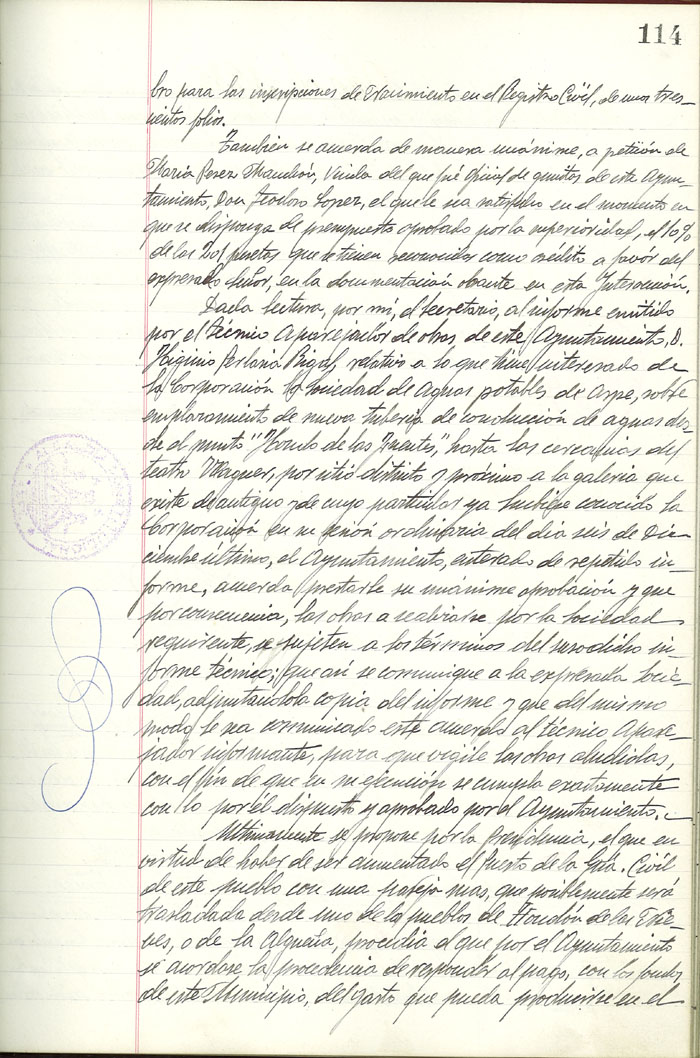 114
bro para las inscripciones de Nacimiento en el Registro Civil, de unos tres-
cientos folios.
También se acuerda de manera unánime, a petición de
María Perez Mauchón, Viuda del que fué Oficial de quintas de este Ayun-
tamiento, Don Teodoro Lopez, el que le sea satisfecho en el momento en
que se disponga de presupuesto aprobado por la superioridad, el 10%
de las 201 pesetas que se tienen reconocidas como crédito a favór del
expresado Señor, en la documentación obrante en esta Intervención.
Dada lectura, por mí, el Secretario, al informe emitido
por el técnico Aparejador de obras, de este Ayuntamiento, D.
Higinio Perlasia Rigal, relativo a lo que tiene interesado de
la Corporación la Sociedad de Aguas potables de Aspe, sobre
emplazamiento de nueva tubería de conducción de aguas des-
de el punto "Hondo de las Fuentes", hasta las cercanias del
teatro Wagner, por sitio distinto y próximo a la galería que
existe de antiguo y de cuyo particular ya hubiese conocido la
Corporación en su sesión ordinaria del día seis de Di-
ciembre último, el Ayuntamiento, enterado de repetido in-
forme, acuerda prestarle su unánime aprobación y que
por consecuencia, las obras a realizarse por la Sociedad
requirente, se sujeten a los términos del susodicho in-
forme técnico; que así se comunique a la expresada Socie-
dad, adjuntandola copia del informe y que del mismo
modo le sea comunicado este acuerdo al técnico Apare-
jador informante, para que vigile las obras aludidas,
con el fín de que en su ejecución se cumpla exactamente
con lo por él dispuesto y aprobado por el Ayuntamiento.
Ultimamente se propone por la Presidencia, el que en
virtud de haber de ser aumentado el Puesto de la Gª. Civíl
de este pueblo con una pareja mas, que posiblemente será
trasladada desde uno de los pueblos de Hondón de las Nie-
ves, o de la Algueña, procedia el que por el Ayuntamiento
se acordase la procedencia de responder al pago, con los fondos
de este Municipio, del gasto que pueda producirse en el